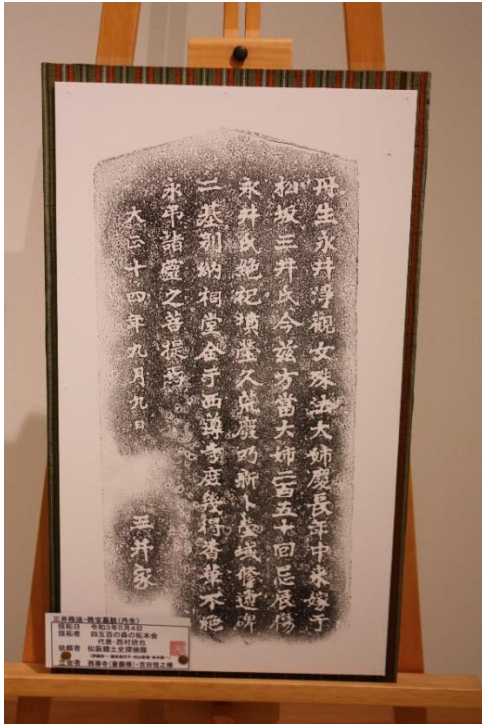 丹生永井淨觀女殊法大姉慶長年中来嫁于
松坂三井氏今茲方當大姉二百五十回忌展
永井氏絶祀墳塋久荒廢乃新卜塋域修造碑
二基列納祠堂金于西導寺庶幾得香華不絶
永弔諸靈之菩提焉
大正十四年九月九日
三井家
三井殊法・殊宝墓誌(丹生)
採拓日 令和3年5月4日
採拓者 四五百の森の拓本会
代表・西村欣也
依頼者 松阪郷土史探検隊
立会者 西導寺(斎藤様)・吉田悦之様